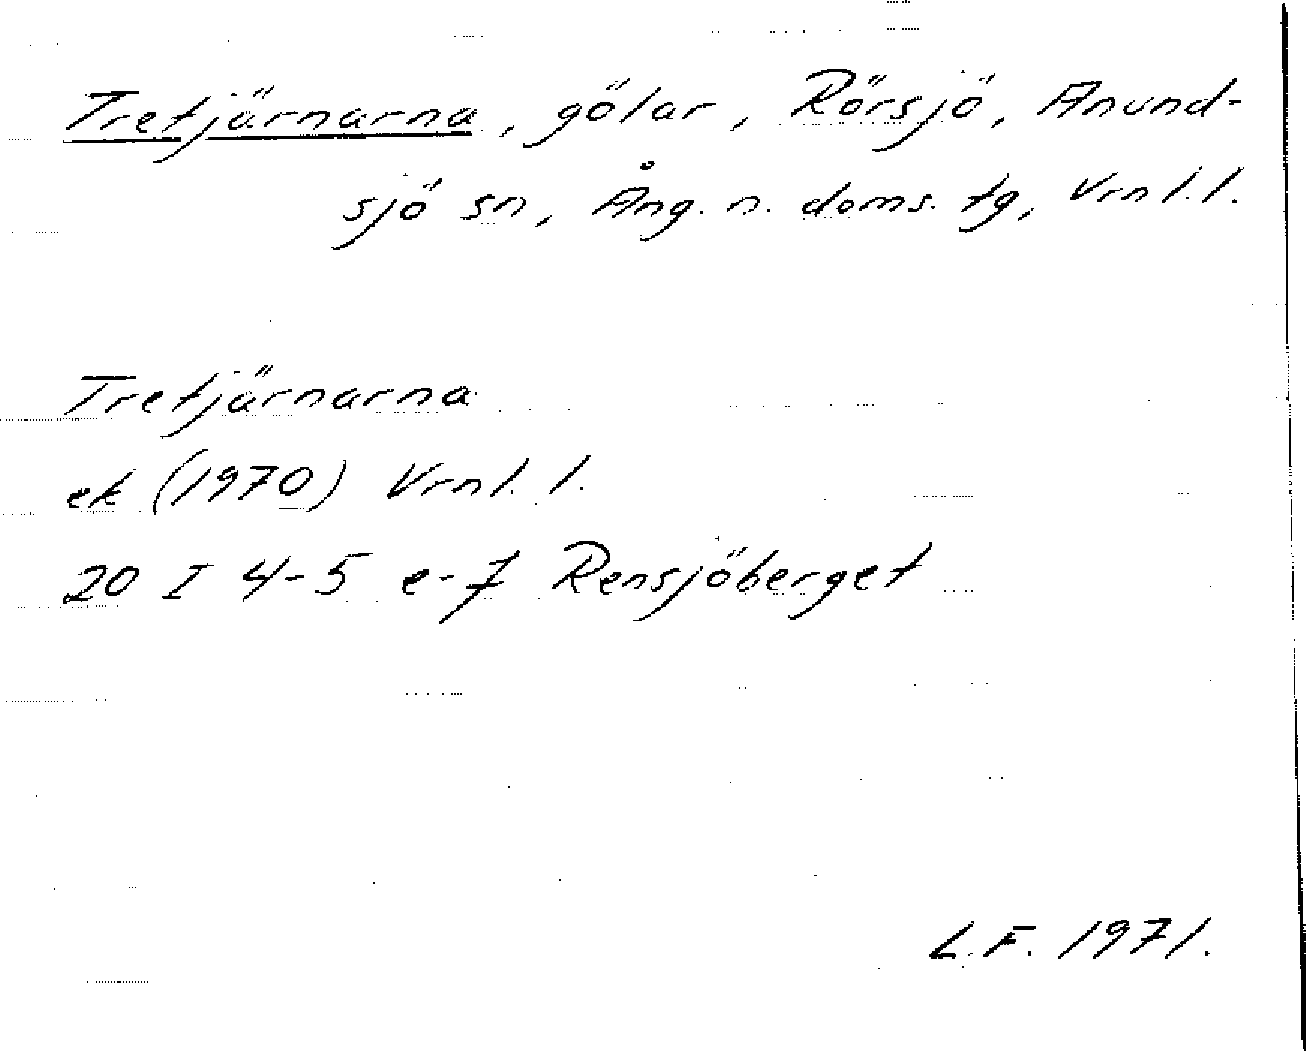 Tretjärnarna, gölar, Rörsjö, Anund-
sjö sn, Ång. n. doms. tg, Vrnl. l.
Tretjärnarna
ek (1970) Vrnl. l.
20 I 4-5 e-f Rensjöberget
L.F. 1971.